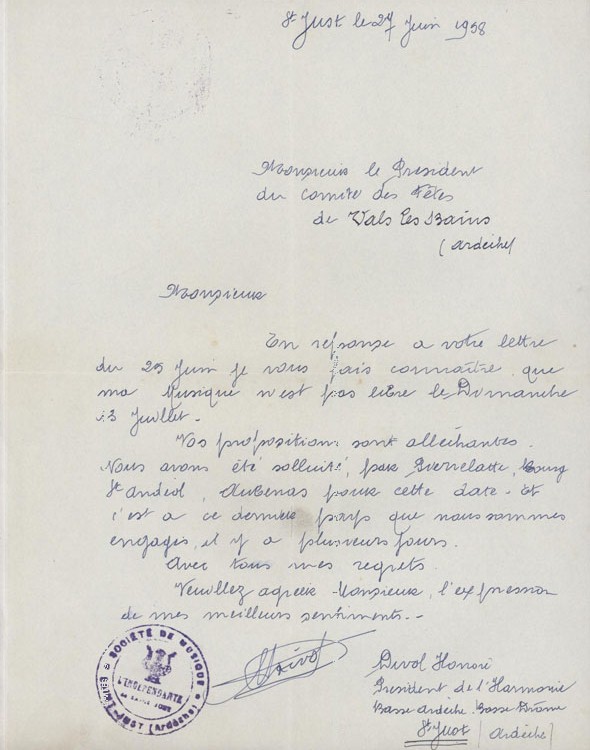 St Just le 27 Juin 1958
Monsieur le President
du comite des Fêtes
de Vals les Bains
(Ardèche)
Monsieur
En reponse a votre lettre
du 25 Juin je vous fais connaître que
ma Musique n'est pas libre le Dimanche
13 Juillet.
Vos propositions sont alléchantes.
Nous avons été sollicité, par Pierrelatte, Bourg
St Andéol, Aubenas pour cette date. Et
c'est a ce dernier pays que nous sommes
engagés, il y a plusieurs jours.
Avec tous mes regrets.
Veuillez agréer Monsieur, l'expression
de mes meilleurs sentiments.-
SOCIÉTÉ DE MUSIQUE
L'INDÉPENDANTE
SAINT-JUST (Ardèche)
Divol Honoré
President de l'Harmonie
Basse Ardèche. Basse Drôme
St Just (Ardèche)